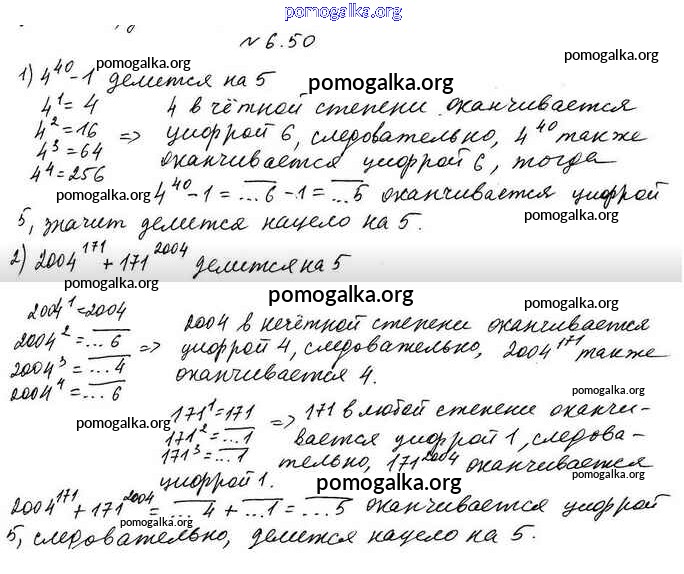 pomogalka.org
№ 6.50
pomogalka.org
1) 4^40 - 1 делится на 5
pomogalka.org
4^1 = 4
4^2 = 16
4^3 = 64
4^4 = 256
=> 4 в чётной степени оканчивается
цифрой 6, следовательно, 4^40 также
оканчивается цифрой 6, тогда
pomogalka.org
4^40 - 1 = ...6 - 1 = ...5 оканчивается цифрой
5, значит делится нацело на 5.
pomogalka.org
2) 2004^171 + 171^2004 делится на 5
pomogalka.org
pomogalka.org
pomogalka.org
2004^1 = 2004
2004^2 = ...6
2004^3 = ...4
2004^4 = ...6
=> 2004 в нечётной степени оканчивается
цифрой 4, следовательно, 2004^171 также
оканчивается 4.
pomogalka.org
pomogalka.org
171^1 = 171
171^2 = ...1
171^3 = ...1
=> 171 в любой степени оканчи-
вается цифрой 1, следова-
тельно, 171^2004 оканчивается
цифрой 1.
pomogalka.org
pomogalka.org
2004^171 + 171^2004 = ...4 + ...1 = ...5 оканчивается цифрой
pomogalka.org
5, следовательно, делится нацело на 5.
pomogalka.org